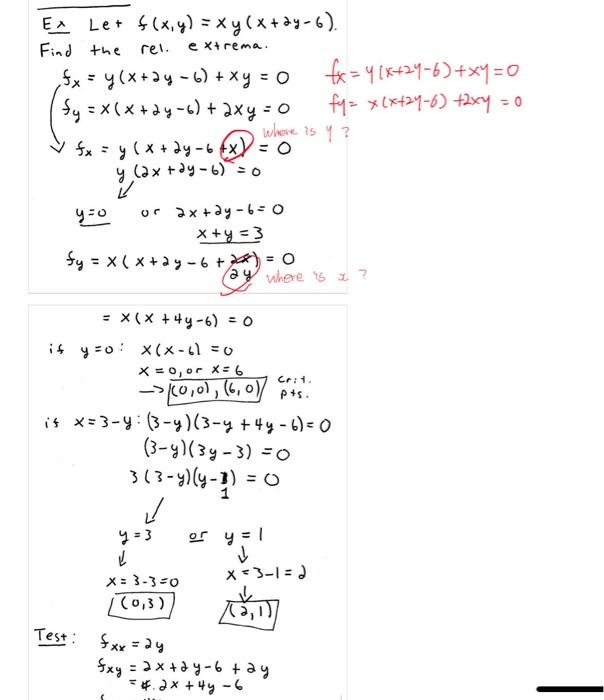 Ex Let f(x,y) = xy(x+2y-6).
Find the rel. extrema.
fx = y(x+2y-6)+xy = 0
fx = y(x+2y-6)+xy=0
fy = x(x+2y-6)+2xy = 0
fy = x(x+2y-6)+2xy = 0
where is y?
fx = y(x+2y-6+x) = 0
y(2x+2y-6) = 0
y=0 or 2x+2y-6=0
x+y=3
fy = x(x+2y-6+2x) = 0
2y where is x?
= x(x+4y-6) = 0
if y=0: x(x-6) = 0
x=0, or x=6
→ (0,0), (6,0) crit. pts.
if x=3-y: (3-y)(3-y+4y-6)=0
(3-y)(3y-3) = 0
3(3-y)(y-1) = 0
1
y=3 or y=1
x=3-3=0 x=3-1=2
(0,3) (2,1)
Test: fxx = 2y
fxy = 2x+2y-6+2y
= 2x+4y-6